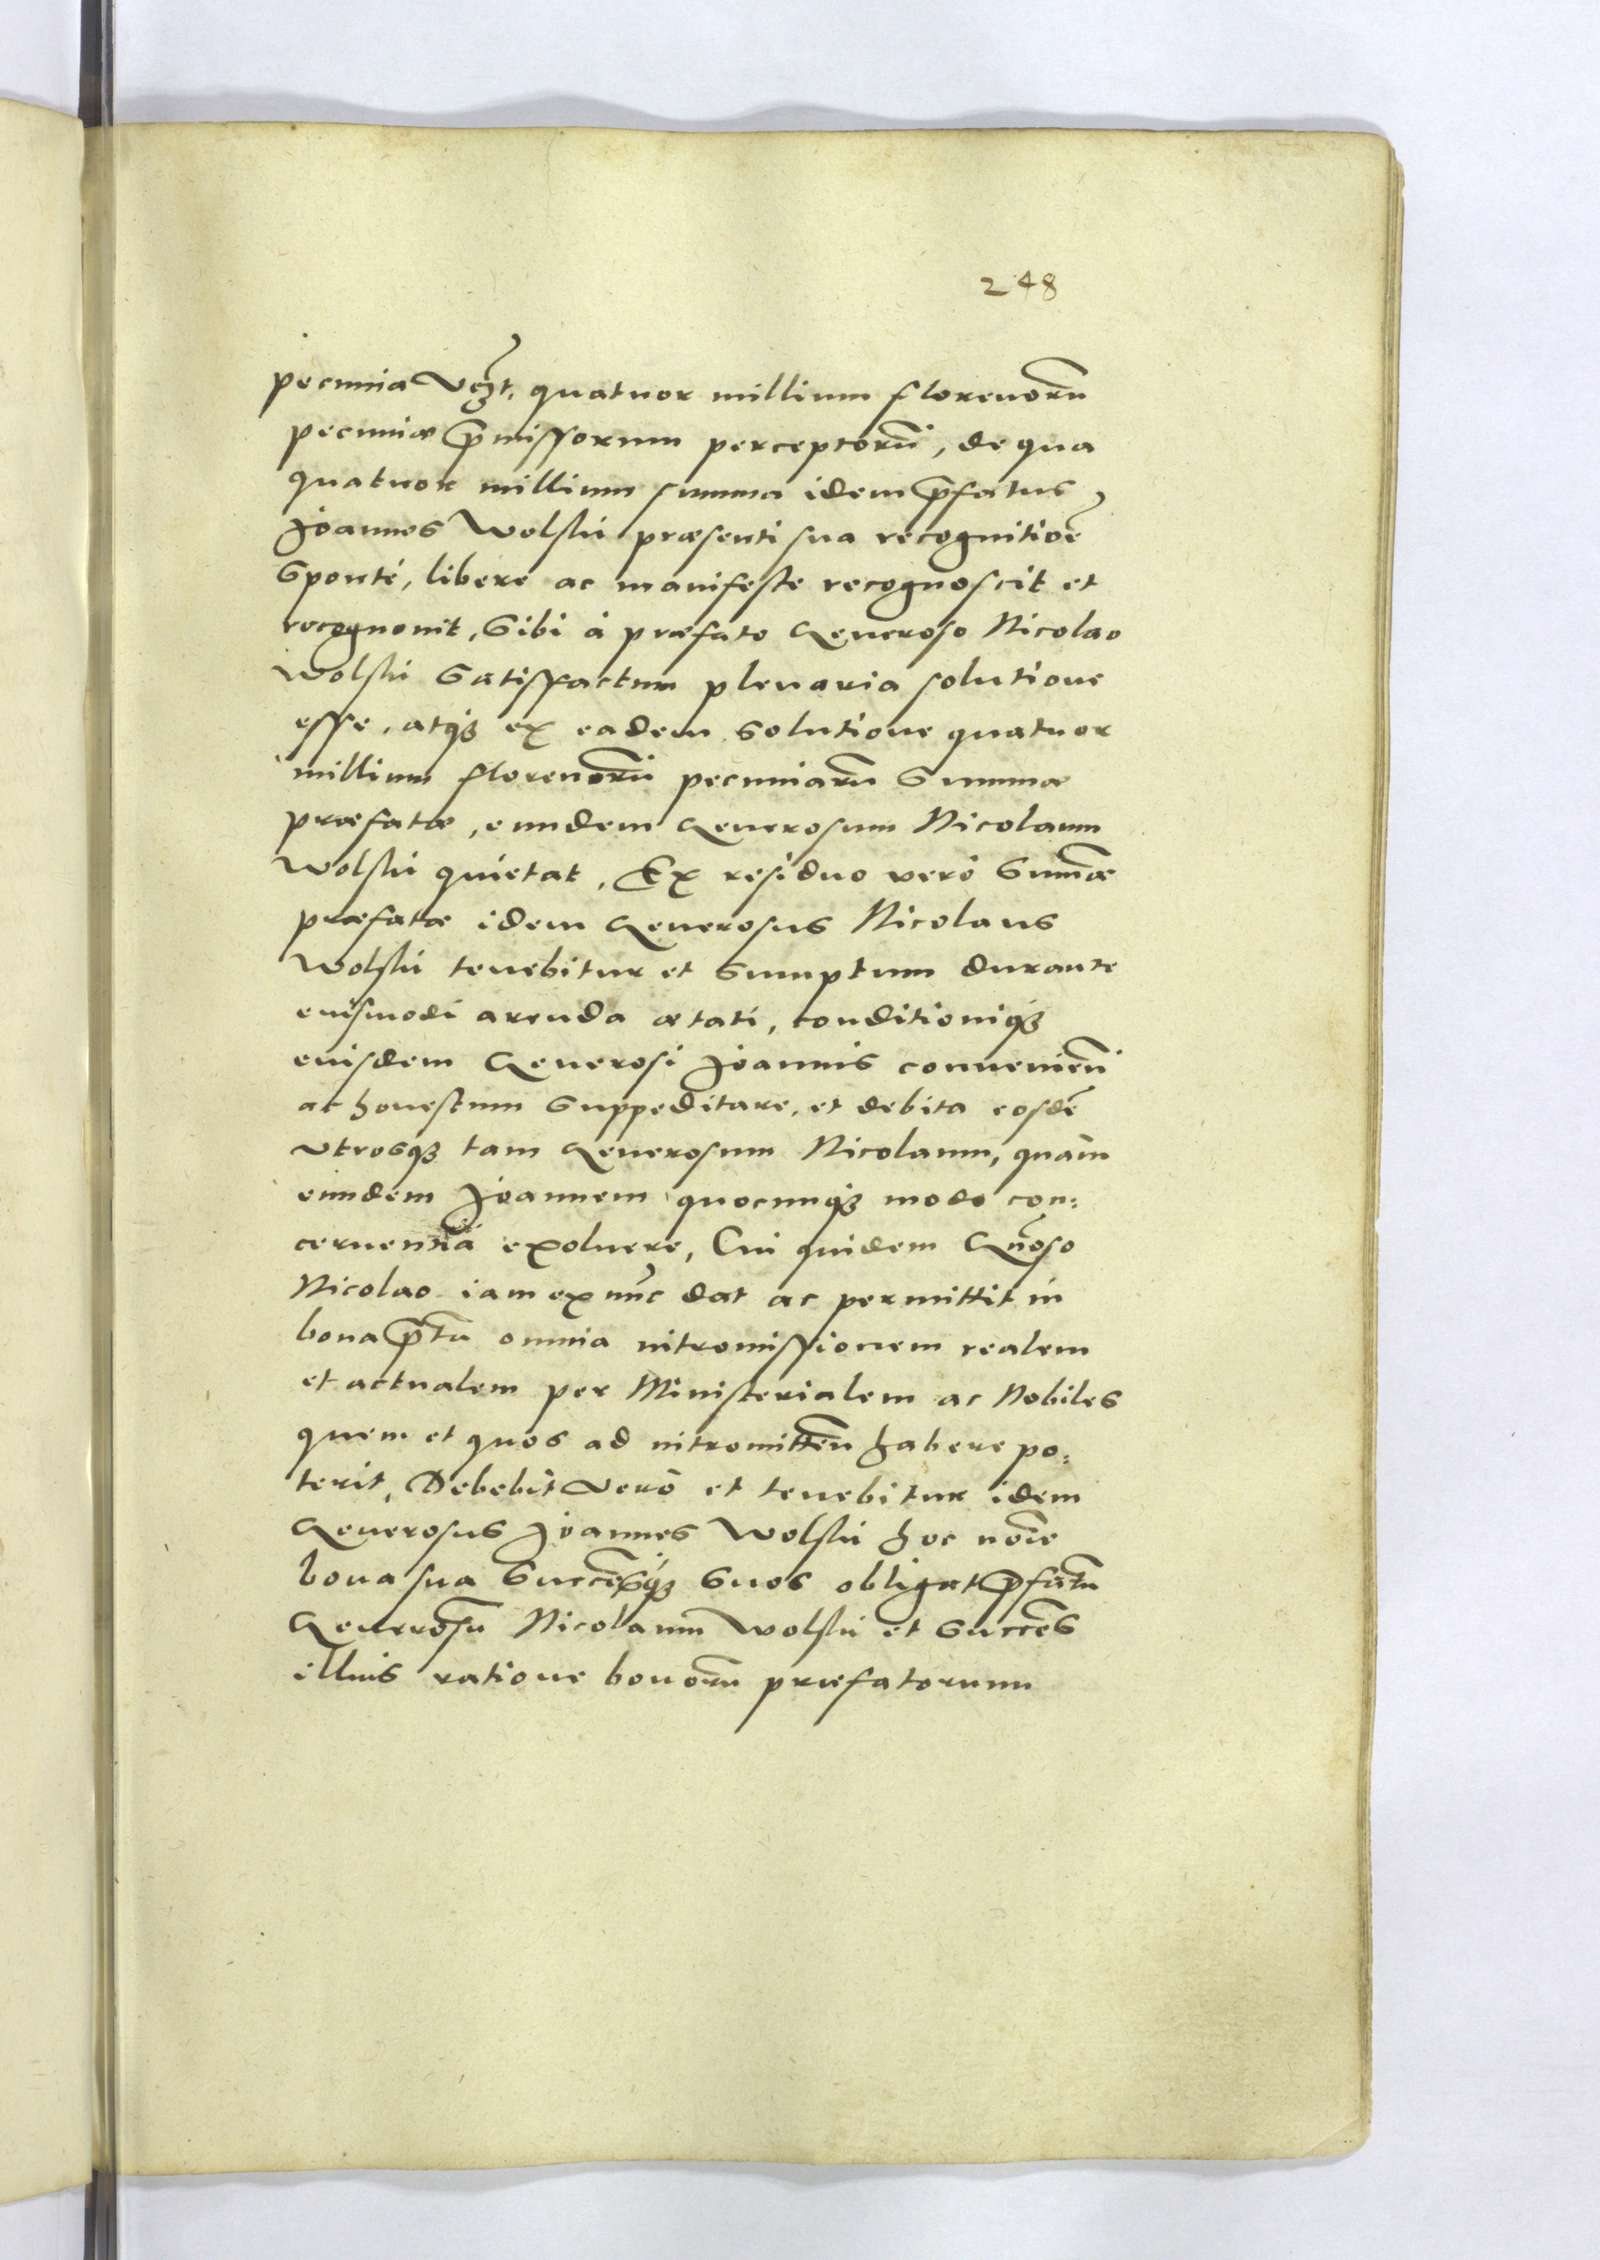 248
pecunia Vczt. quatuor millium florenorũ
pecuniæ p̃missorum perceptorũ, de qua
quatuor millium summa idem p̃fatus
Joannes Wolski præsenti sua recognitioe̅
Sponté, libere ac manifeste recognoscit et
recognouit, Sibi à præfato Generoso Nicolao
Wolski Satisfactum plenaria solutione
esse, atqꝫ ex eadem Solutione quatuor
millium florenorũ pecuniarũ Summæ
præfatæ, eundem Generosum Nicolaum
Wolski quietat, Ex residuo verò Sum̃æ
præfatæ idem Generosus Nicolaus
Wolski tenebitur et Sumptum durante
euismodi arenda ætati, conditioniqꝫ
euisdem Generosi Joannis conuenien̅
ac honestum Suppeditare, et debita eosde̅
Vtrosqꝫ tam Generosum Nicolaum, quàm
eundem Joannem quocunqꝫ modo con:
cernentia exoluere, Cui quidem Gñoso
Nicolao iam ex nũc dat ac permittit in
bona p̃ta omnia intromissionem realem
et actualem per Ministerialem ac Nobiles
quem et quos ad intromitten̅ habere po:
terit, Debebit Verò et tenebitur idem
Generosus Joannes Wolski hoc noĩe
bona sua Succes̃qꝫ Suos obligat p̃fatũ
Generosũ Nicolaum Wolski et Succe̅s
illius ratione bonorũ præfatorum